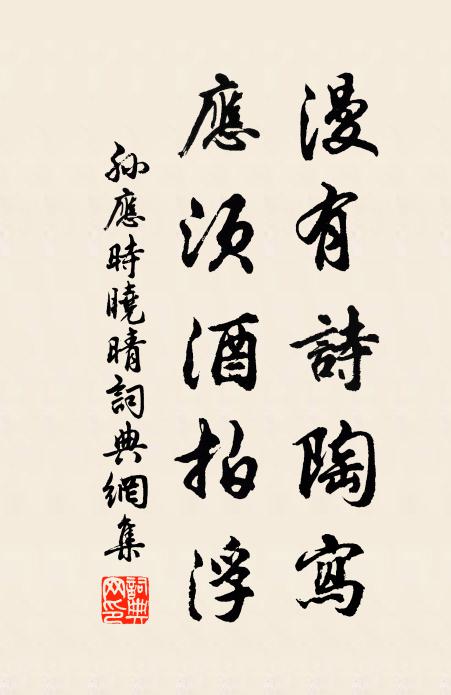 漫有詩陶寫
應須酒拍浮
孫應時曉晴詞典網集
詞典網印